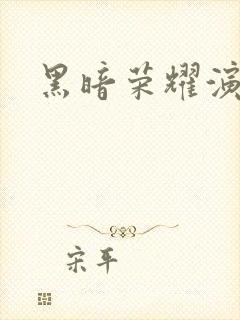 黑暗荣耀演
宋平